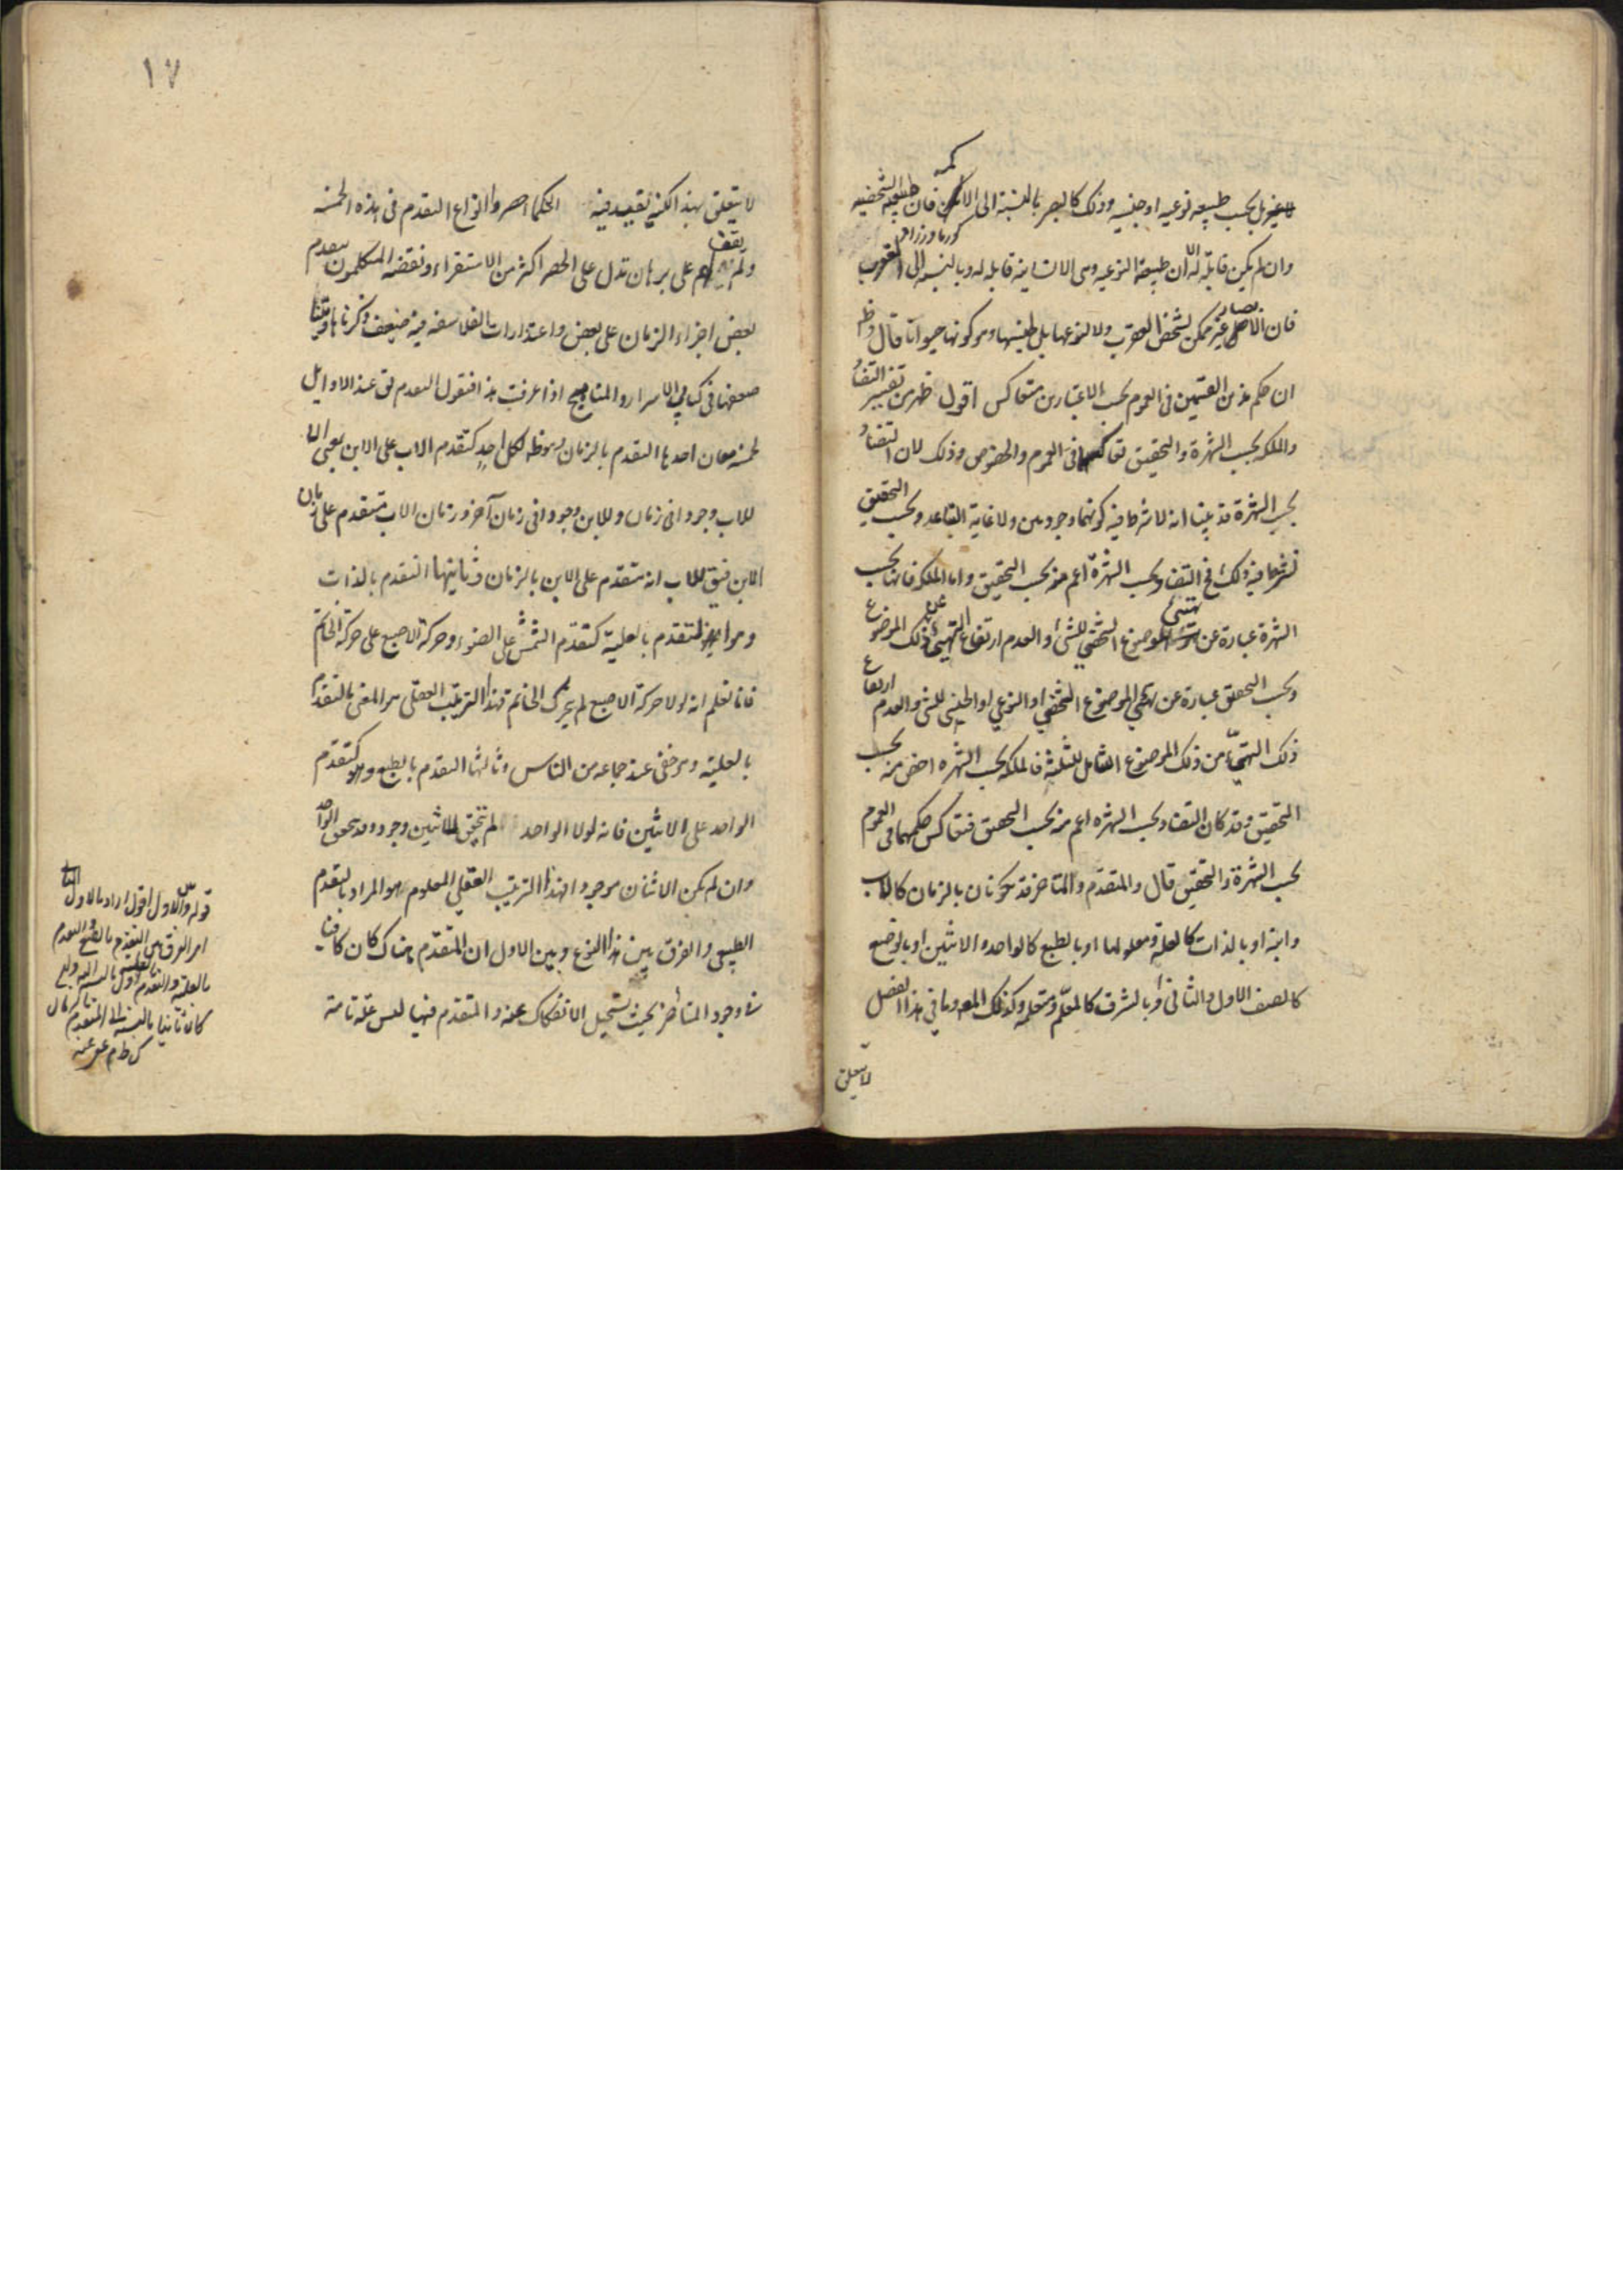 لا غير بل بحسب طبيعه نوعيه او جنسيه وذلك كالبصر بالنسبة الى الاكمه فان طبيعته الشخصيه
وان لم يكن قابلة له الا ان طبيعته النوعيه وهى الانسانية قابله له وبالنسبه الى العقرب
فان الابصار غير ممكن لشخص العقرب ولا لنوعها بل لجنسها وهو كونها حيوانا قال
ان حكم هذين القسمين فى العموم بحسب الاعتبارين متعاكس اقول ظهر من تفسير التضاد
والملكه بحسب الشهرة والتحقيق تعاكسهما فى العموم والخصوص وذلك لان التضاد
بحسب الشهرة قد بينا انه لا شرط فيه كونهما وجوديين ولا غاية التباعد وبحسب التحقيق
شرطنا فيه ذلك فالتضاد بحسب الشهرة اعم منه بحسب التحقيق واما الملكه فانها بحسب
الشهرة عبارة عن تهيئ الموضوع الشخصى للشئ والعدم ارتفاع التهيئ عن ذلك الموضوع
وبحسب التحقق عبارة عن تهيئ الموضوع الشخصى او النوعى او الجنسى للشئ والعدم ارتفاع
ذلك التهيئ من ذلك الموضوع الشامل للثلثة فالملكه بحسب الشهره اخص منه بحسب
التحقيق وقد كان التضاد بحسب الشهره اعم منه بحسب التحقق فتعاكس حكمهما فى العموم
بحسب الشهرة والتحقيق قال والمتقدم والمتاخر قد يكونان بالزمان كالاب
وابنه او بالذات كالعلة ومعلولها او بالطبع كالواحد والاثنين او بالوضع
كالصف الاول والثانى او بالشرف كالمعلم ومتعلمه وكذلك المعى وما فى هذا الفصل
لا يتعلق
١٧
لا يتعلق بهذا لكنه يفيد فيه الحكما حصروا انواع التقدم فى هذه الخمسه
ولم يقف على برهان تدل على الحصر اكثر من الاستقراء ونقضه المتكلمون بتقدم
بعض اجزاء الزمان على بعض واعتذارات الفلاسفه فيه ضعيف ذكرناها وبينا
ضعفها فى كتابى الاسرار والمناهج اذا عرفت هذا فنقول التقدم يق عند الاوايل
لخمسه معان احدها التقدم بالزمان وهو ظه لكل احد كتقدم الاب على الابن يعنى ان
للاب وجودا فى زمان وللابن وجودا فى زمان آخر وزمان الاب متقدم على زمان
الابن فيق للاب انه متقدم على الابن بالزمان وثانيتها التقدم بالذات
وهو المتقدم بالعلية كتقدم الشمس على الضوء وحركة الاصبع على حركة الخاتم
فانا نعلم انه لولا حركة الاصبع لم يتحرك الخاتم فهذا الترتيب العقلى هو المعنى بالتقدم
بالعليه وهو خفى عند جماعه من الناس وثالثها التقدم بالطبع وهو كتقدم
الواحد على الاثنين فانه لولا الواحد لم يتحقق للاثنين وجود وقد يتحقق الواحد
وان لم يكن الاثنان موجودا فهذا الترتيب العقلى المعلوم هو المراد بالتقدم
الطبيعى والفرق بين هذا النوع وبين الاول ان المتقدم هناك كان كافيا
فى وجود المتاخر بحيث يستحيل الانفكاك عنه والمتقدم فيها ليس علة تامة
قوله وبين الاول اقول اراد بالاول الثانى
اى الفرق بين التقدم بالطبع والتقدم
بالعلية والتقدم
كان ثانيا بالنسبة الى المتقدم بالزمان